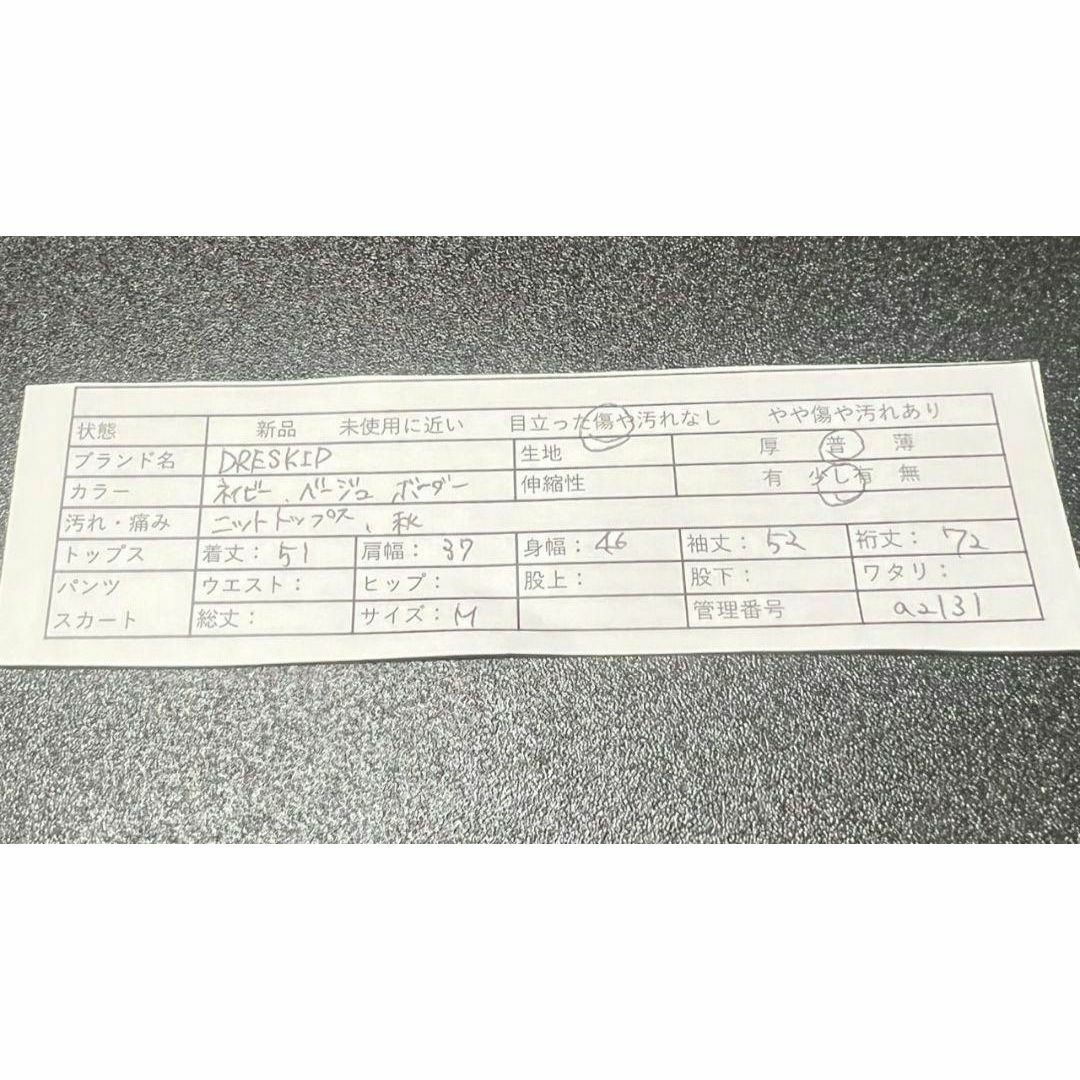 状態 新品 未使用に近い 目立った傷や汚れなし やや傷や汚れあり
ブランド名 DRESKIP 生地 厚 普 薄
カラー ネイビー、ベージュ ボーダー 伸縮性 有 少し有 無
汚れ・痛み ニットトップス、秋
トップス 着丈：51 肩幅：37 身幅：46 袖丈：52 裄丈：72
パンツ ウエスト： ヒップ： 股上： 股下： ワタリ：
スカート 総丈： サイズ：M 管理番号 a2131